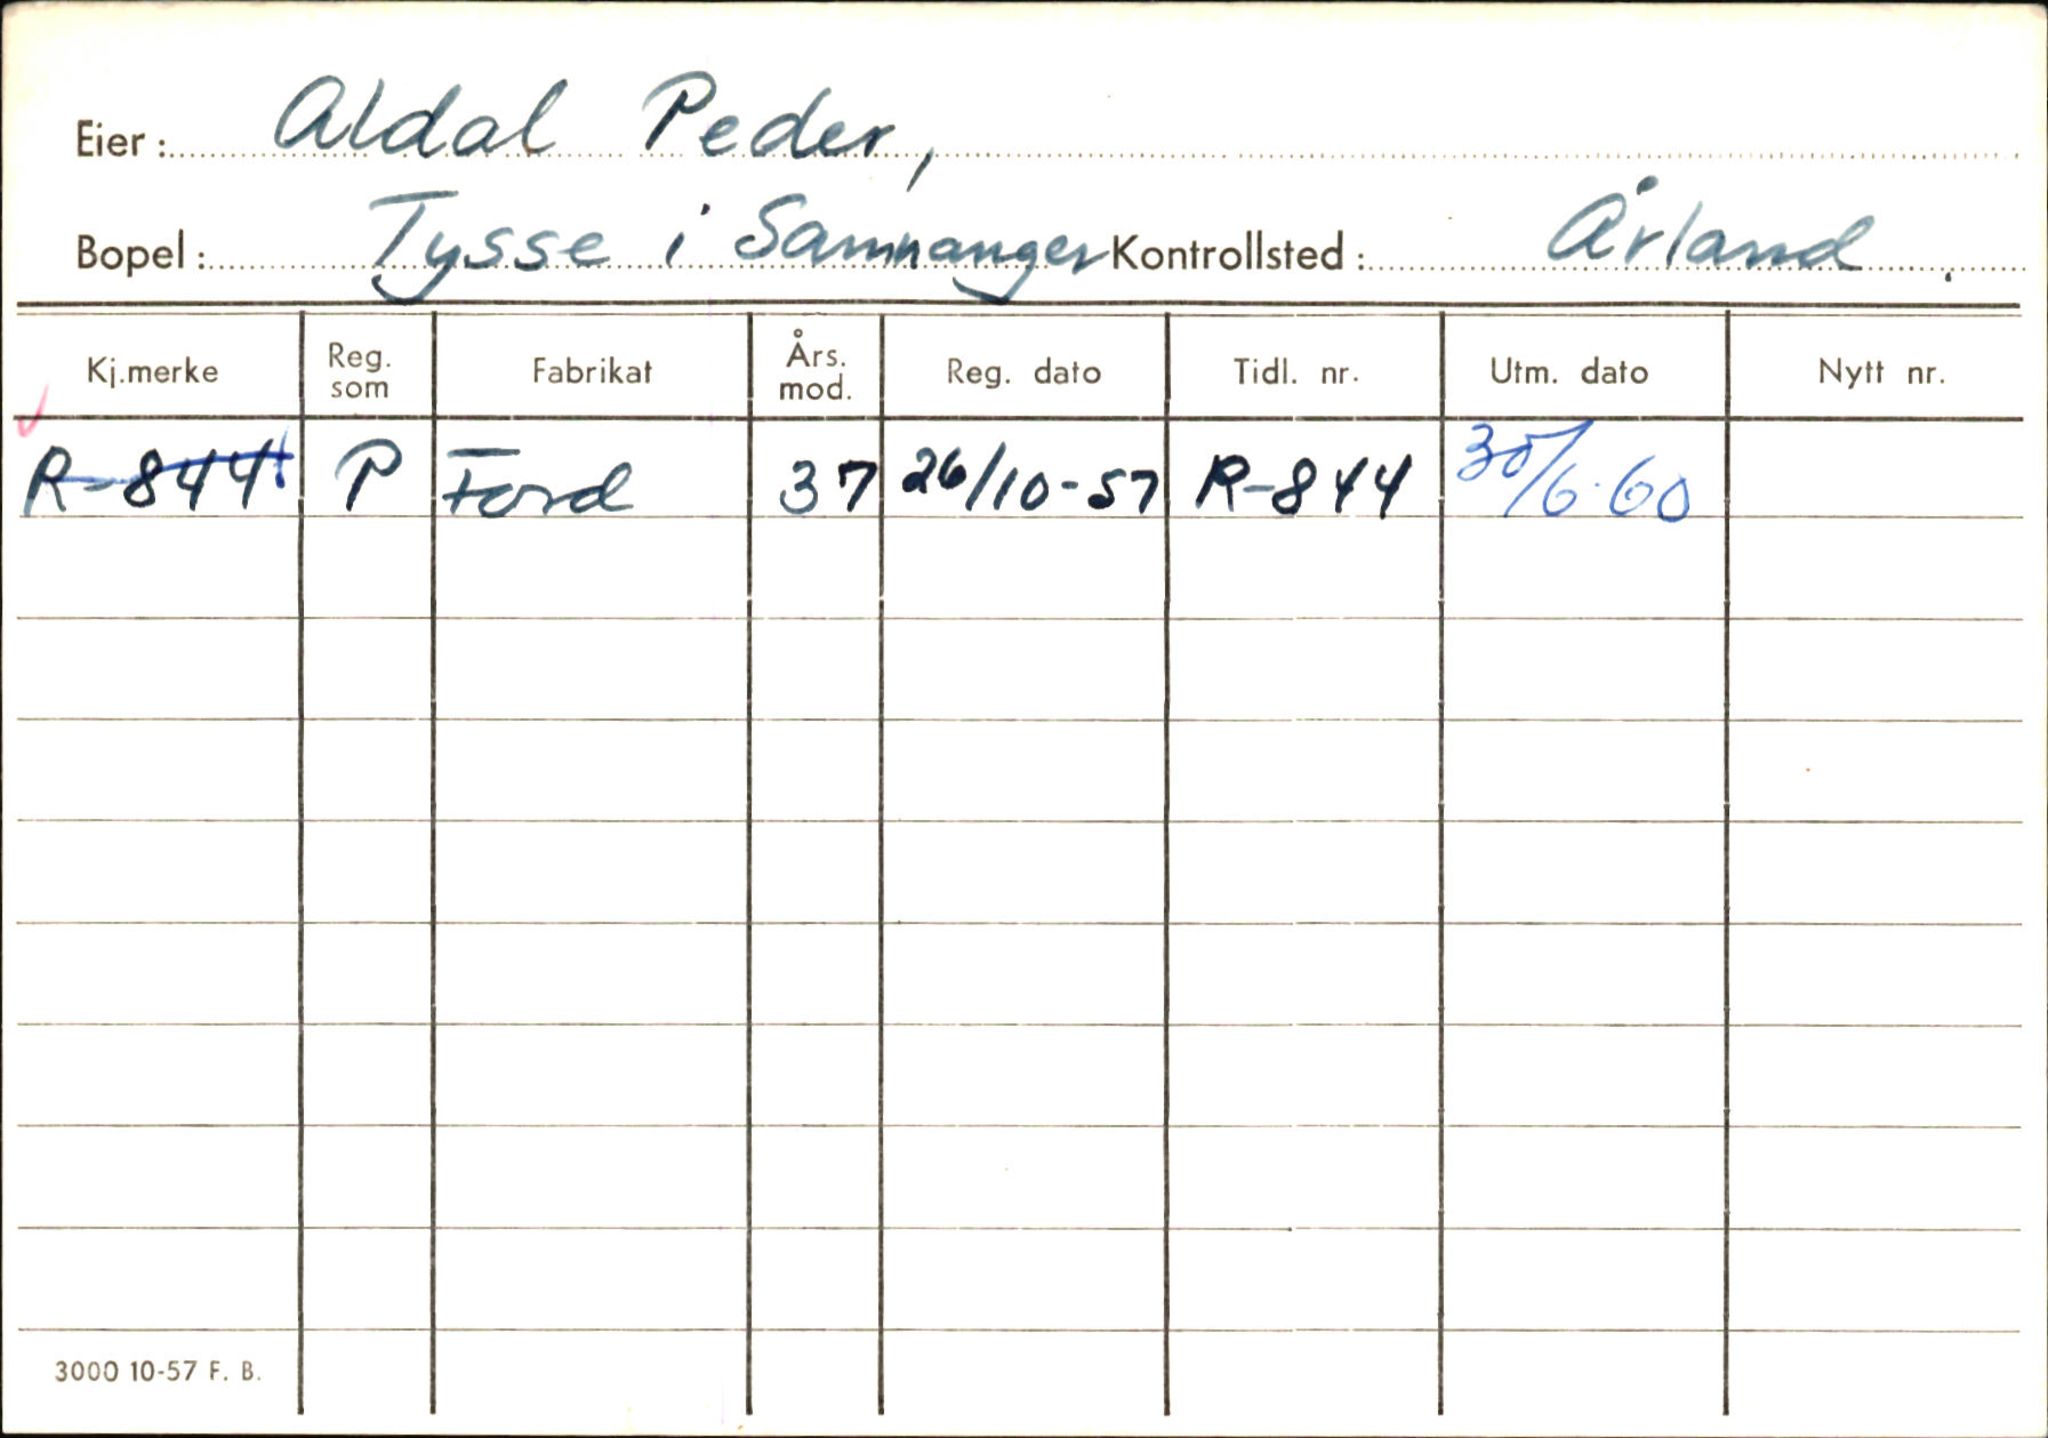 Eier: Aldal Peder,
Bopel: Tysse i Samnanger Kontrollsted: Årland.
Kj.merke Reg. som Fabrikat Års. mod. Reg. dato Tidl. nr. Utm. dato Nytt nr.
R-844 P Ford 37 26/10-57 R-844 30/6-60
3000 10-57 F. B.